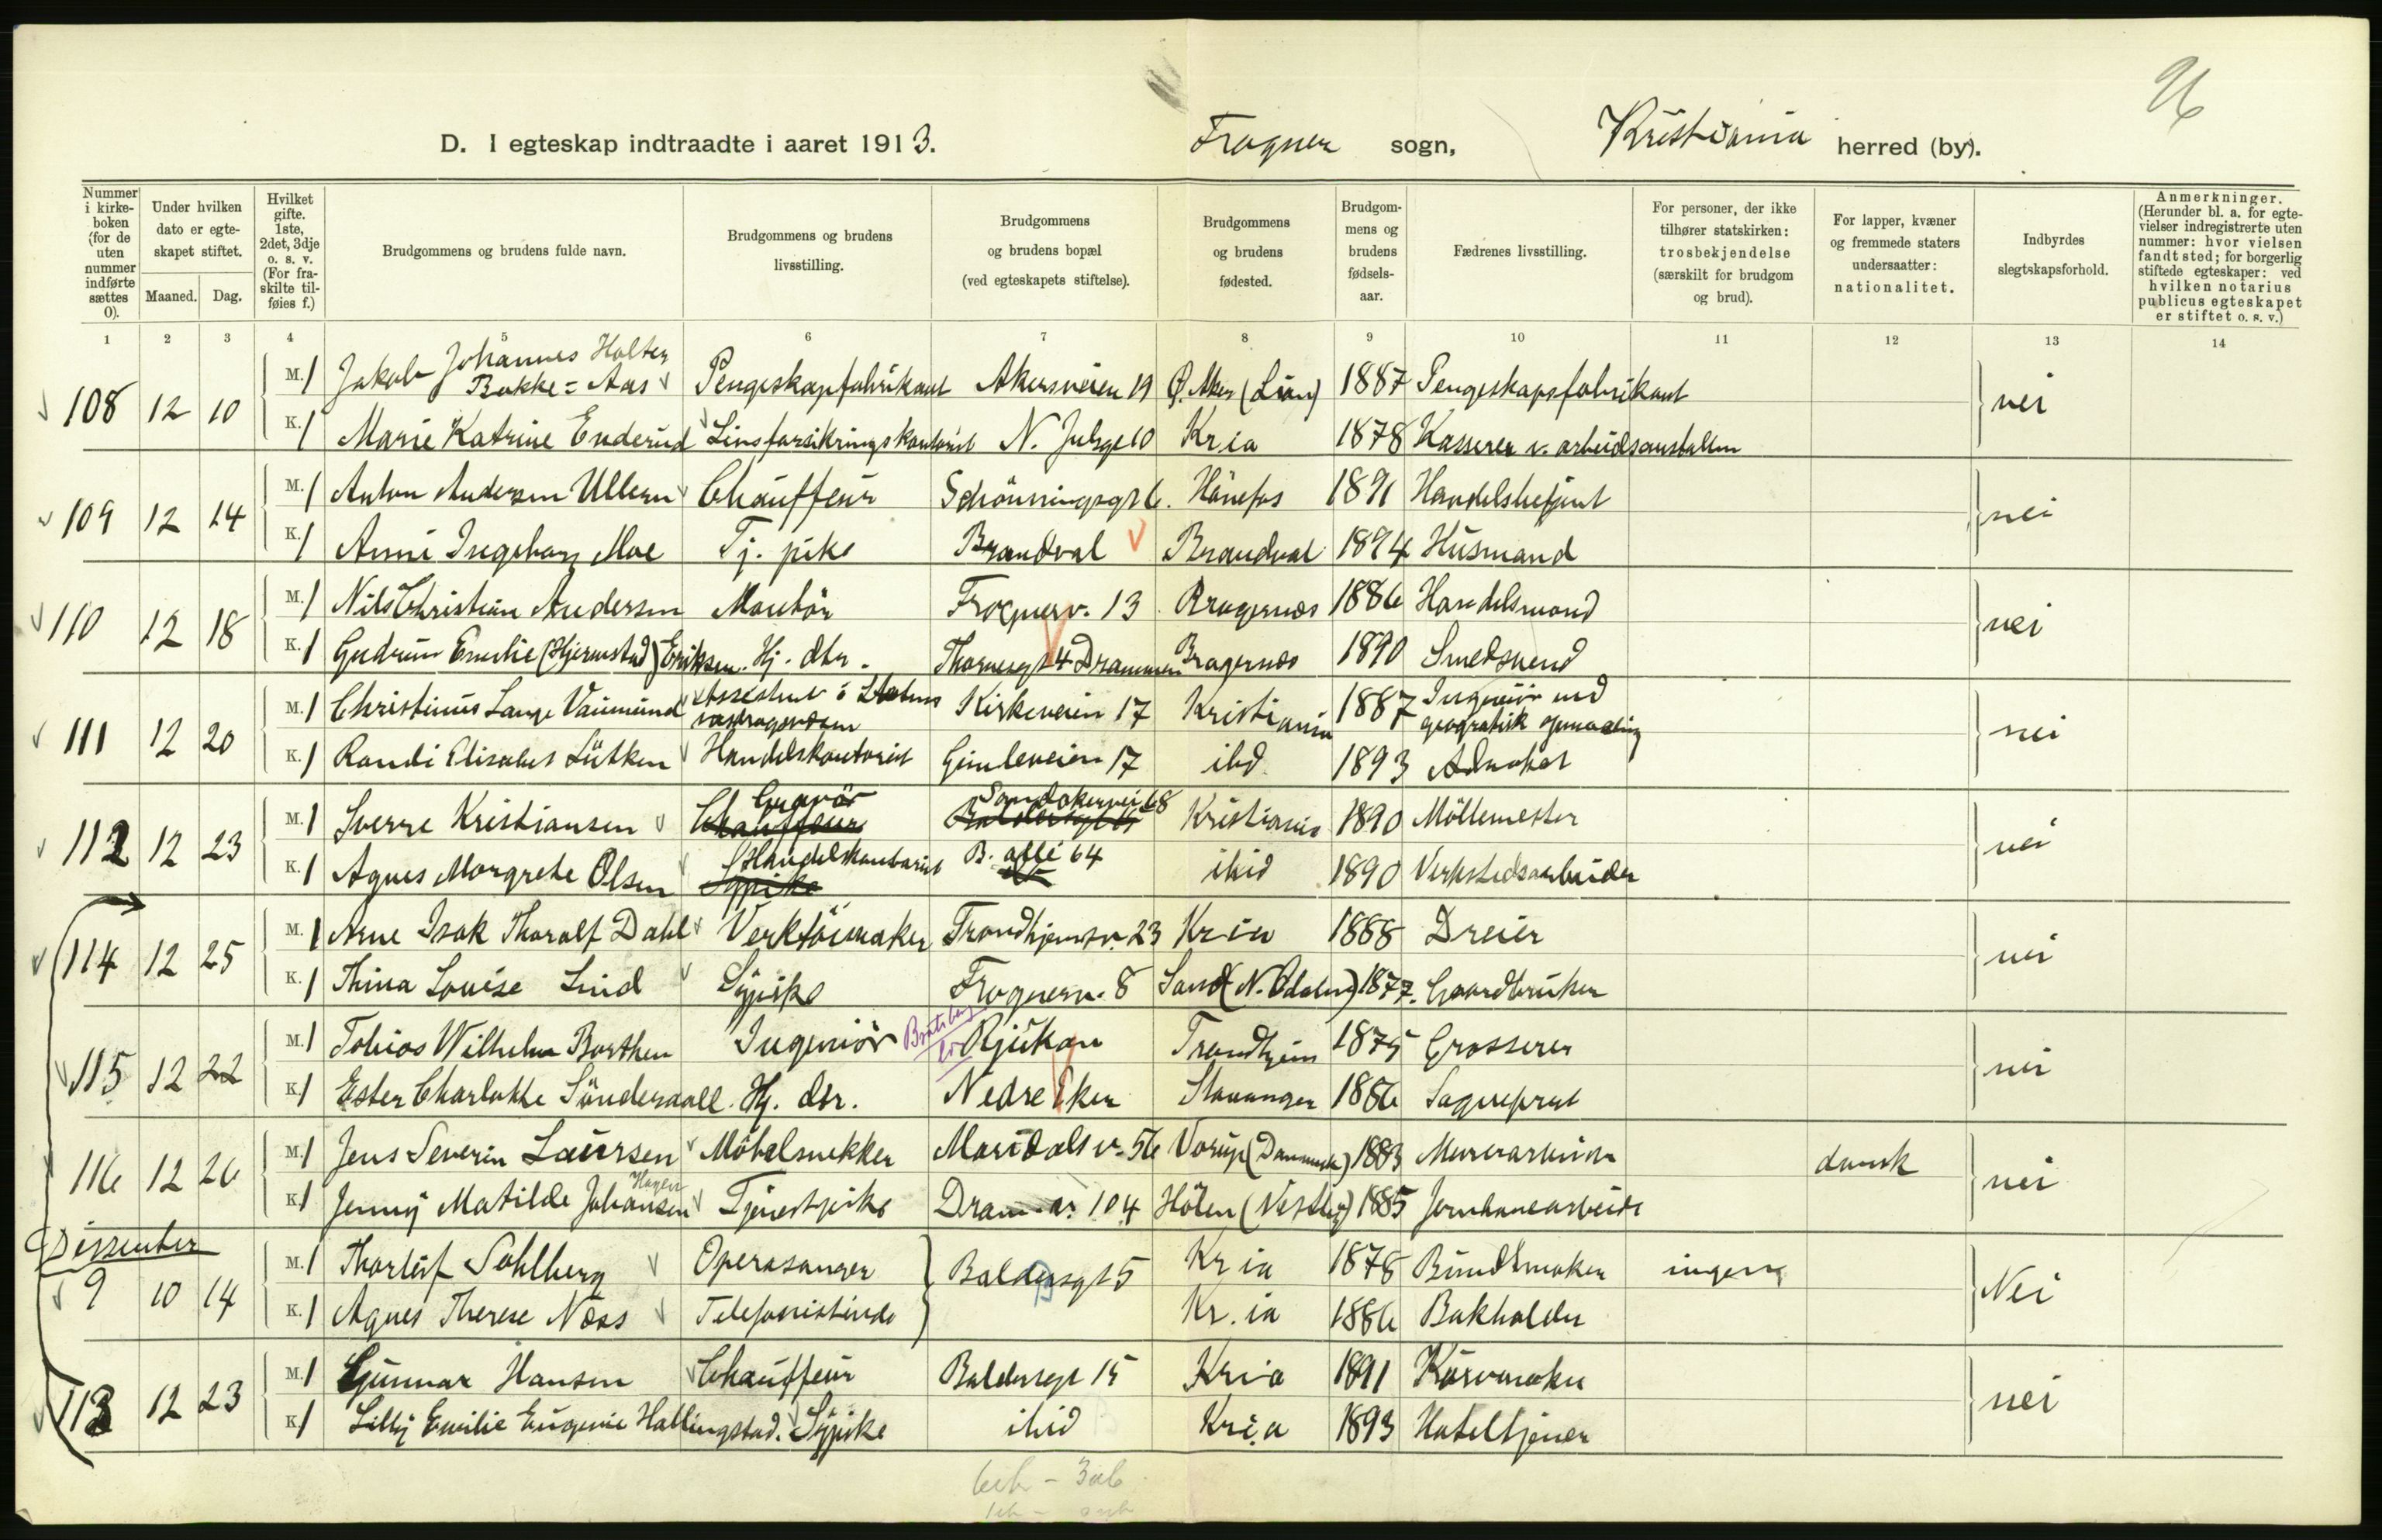 96
D. I egteskap indtraadte i aaret 1913. Frogner sogn, Kristiania herred (by).
Nummer i kirke-boken (for de uten nummer indførte sættes 0).
Under hvilken dato er egte-skapet stiftet.
Maaned. Dag.
Hvilket gifte. 1ste, 2det, 3dje o. s. v. (For fra-skilte til-føies f.)
Brudgommens og brudens fulde navn.
Brudgommens og brudens livsstilling.
Brudgommens og brudens bopæl (ved egteskapets stiftelse).
Brudgommens og brudens fødested.
Brudgom-mens og brudens fødsels-aar.
Fædrenes livsstilling.
For personer, der ikke tilhører statskirken: trosbekjendelse (særskilt for brudgom og brud).
For lapper, kvæner og fremmede staters undersaatter: nationalitet.
Indbyrdes slegtskapsforhold.
Anmerkninger. (Herunder bl. a. for egte-vielser indregistrerte uten nummer: hvor vielsen fandt sted; for borgerlig stiftede egteskaper: ved hvilken notarius publicus egteskapet er stiftet o. s. v.)
1 2 3 4 5 6 7 8 9 10 11 12 13 14
108 12 10 M. 1 Jakob Johannes Holter Bakke=Aas Pengeskapfabrikant Akersveien 19 Ø. Aker (Lian) 1887 Pengeskapsfabrikant nei
K. 1 Marie Katrine Enderud Livsforsikringskontorist N. Julsgt 10 Kria 1878 Kasserer v. arbeidsanstalten
109 12 14 M. 1 Anton Andersen Ullern Chauffeur Schönningsgt 6. Hönefos 1891 Handelsbetjent nei
K. 1 Anni Ingeborg Moe Tj. pike Brandval Brandval 1894 Husmand
110 12 18 M. 1 Nils Christian Andersen Montör Frognerv. 13 Bragernes 1886 Handelsmand nei
K. 1 Gudrun Emilie (Hjermstad) Eriksen. Hj. dtr. Thornegt 4 Drammen Bragernes 1890 Smedsvend
111 12 20 M. 1 Christinus Lange Vaumund Assistent i Statens vasdragsvæsen Kirkeveien 17 Kristiania 1887 Ingeniör ved geografisk opmaaling nei
K. 1 Randi Elisabet Lütken Handelskontorist Gimleveien 17 ibd. 1893 Advokat
112 12 23 M. 1 Sverre Kristiansen Gravör Chauffeur Sandakervei 68 Baldersgt 15 Kristiania 1890 Möllemester nei
K. 1 Agnes Margrete Olsen Handelskontorist Sypike B. allé 64 1890 ibid Verkstedsarbeider
114 12 25 M. 1 Arne Isak Thoralf Dahl Verktöimaker Trondhjemsv. 23 Kria 1888 Dreier nei
K. 1 Thina Louise Lind Sypike Frognerv. 8 Sand (N. Odalen) 1877. Gaardbruker
115 12 22 M. 1 Tobias Wilhelm Borthen Ingeniör Bratsberg Rjukan Trondhjem 1875 Grosserer nei
K. 1 Ester Charlotte Sönderaall Hj. dtr. Nedre Eker Stavanger 1886 Sogneprest
116 12 26 M. 1 Jens Severin Laursen Möbelsnekker Maridalsv. 56 Vorup (Danmark) 1883 Murerarbeider dansk nei
K. 1 Jenny Matilde Johansen Hagen Tjenestpike Dram.v. 104 Hölen (Vestby) 1885 Jernbanearbeide
Dissenter
9 10 14 M. 1 Thorleif Sohlberg Operasanger Baldersgt 5 Kria 1878 Bundtmaker ingen Nei
K. 1 Agnes Therese Næss Telefonistinde Kr.ia 1886 Bokholder
113 12 23 M. 1 Gunnar Hansen Chauffeur Baldersgt 15 Kria 1891 Kurvmaker nei
K. 1 Lilly Emilie Eugenie Hallingstad. Sypike ibid Kria 1893 Hoteltjener